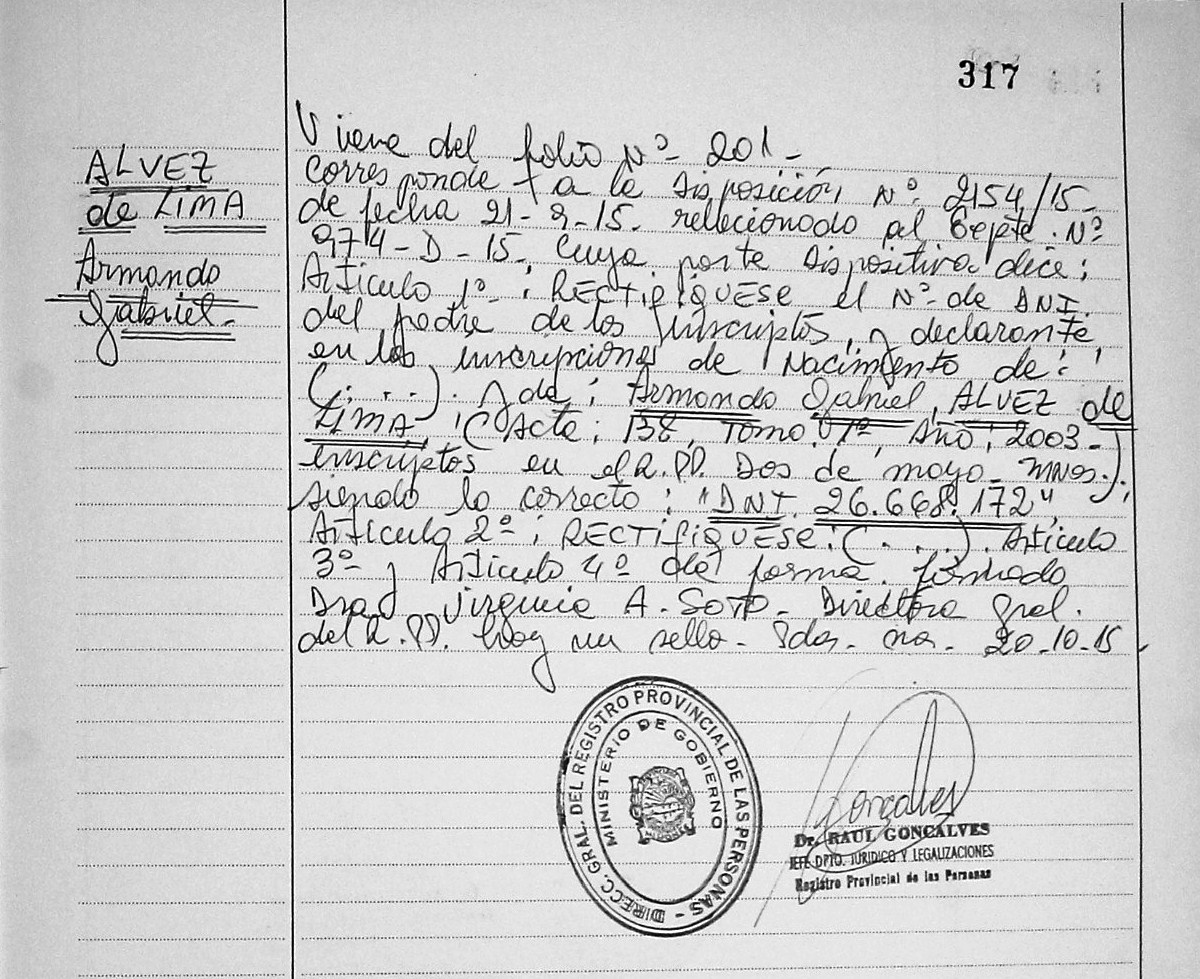 317
ALVEZ
de LIMA
Armando
Gabriel.-
Viene del folio Nº- 201-
Corresponde a la Disposición Nº 2154/15-
de fecha 21-9-15- rellecionado al Expte. Nº
9714-D-15, cuya parte dispositiva dice:
Artículo 1º-: RECTIFIQUESE el Nº de DNI.
del padre de los inscriptos, y declarante,
en las inscripciones de Nacimiento de:
(.....). y de: Armando Gabriel, ALVEZ de
LIMA (Acta: 138, Tomo: 1º, Año: 2003-)
inscriptos en el R.PP. Dos de mayo- MNES.);
siendo lo correcto: "DNI. 26.668.172",
Artículo 2º: RECTIFIQUESE: (.....). Artículo
3º y Artículo 4º de forma. firmado
Dra. Virginia A. SOTO- Directora Gral.
del R.PP. hay un sello- Pdas. Mnes. 20-10-15
DIRECC. GRAL. DEL REGISTRO PROVINCIAL DE LAS PERSONAS -
MINISTERIO DE GOBIERNO
Dr. RAUL GONCALVES
JEFE DPTO. JURIDICO Y LEGALIZACIONES
Registro Provincial de las Personas